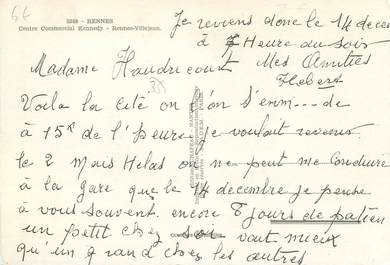 66
2398 - RENNES
Centre Commercial Kennedy - Rennes-Villejean.
Je reviens donc le 14 dece
à 7 Heure du soir
Madame Haudricourt Mes Amitiés
Hebert
Voila la cité ou l'on s'enm...de
à 15 de l'heure je voulait revenir
le 2 Mais Helas on ne peut me conduire
à la gare que le 14 decembre je pense
à vous souvent. encore 8 jours de patien
un petit chez soi vaut mieux
qu'un grand chez les autres